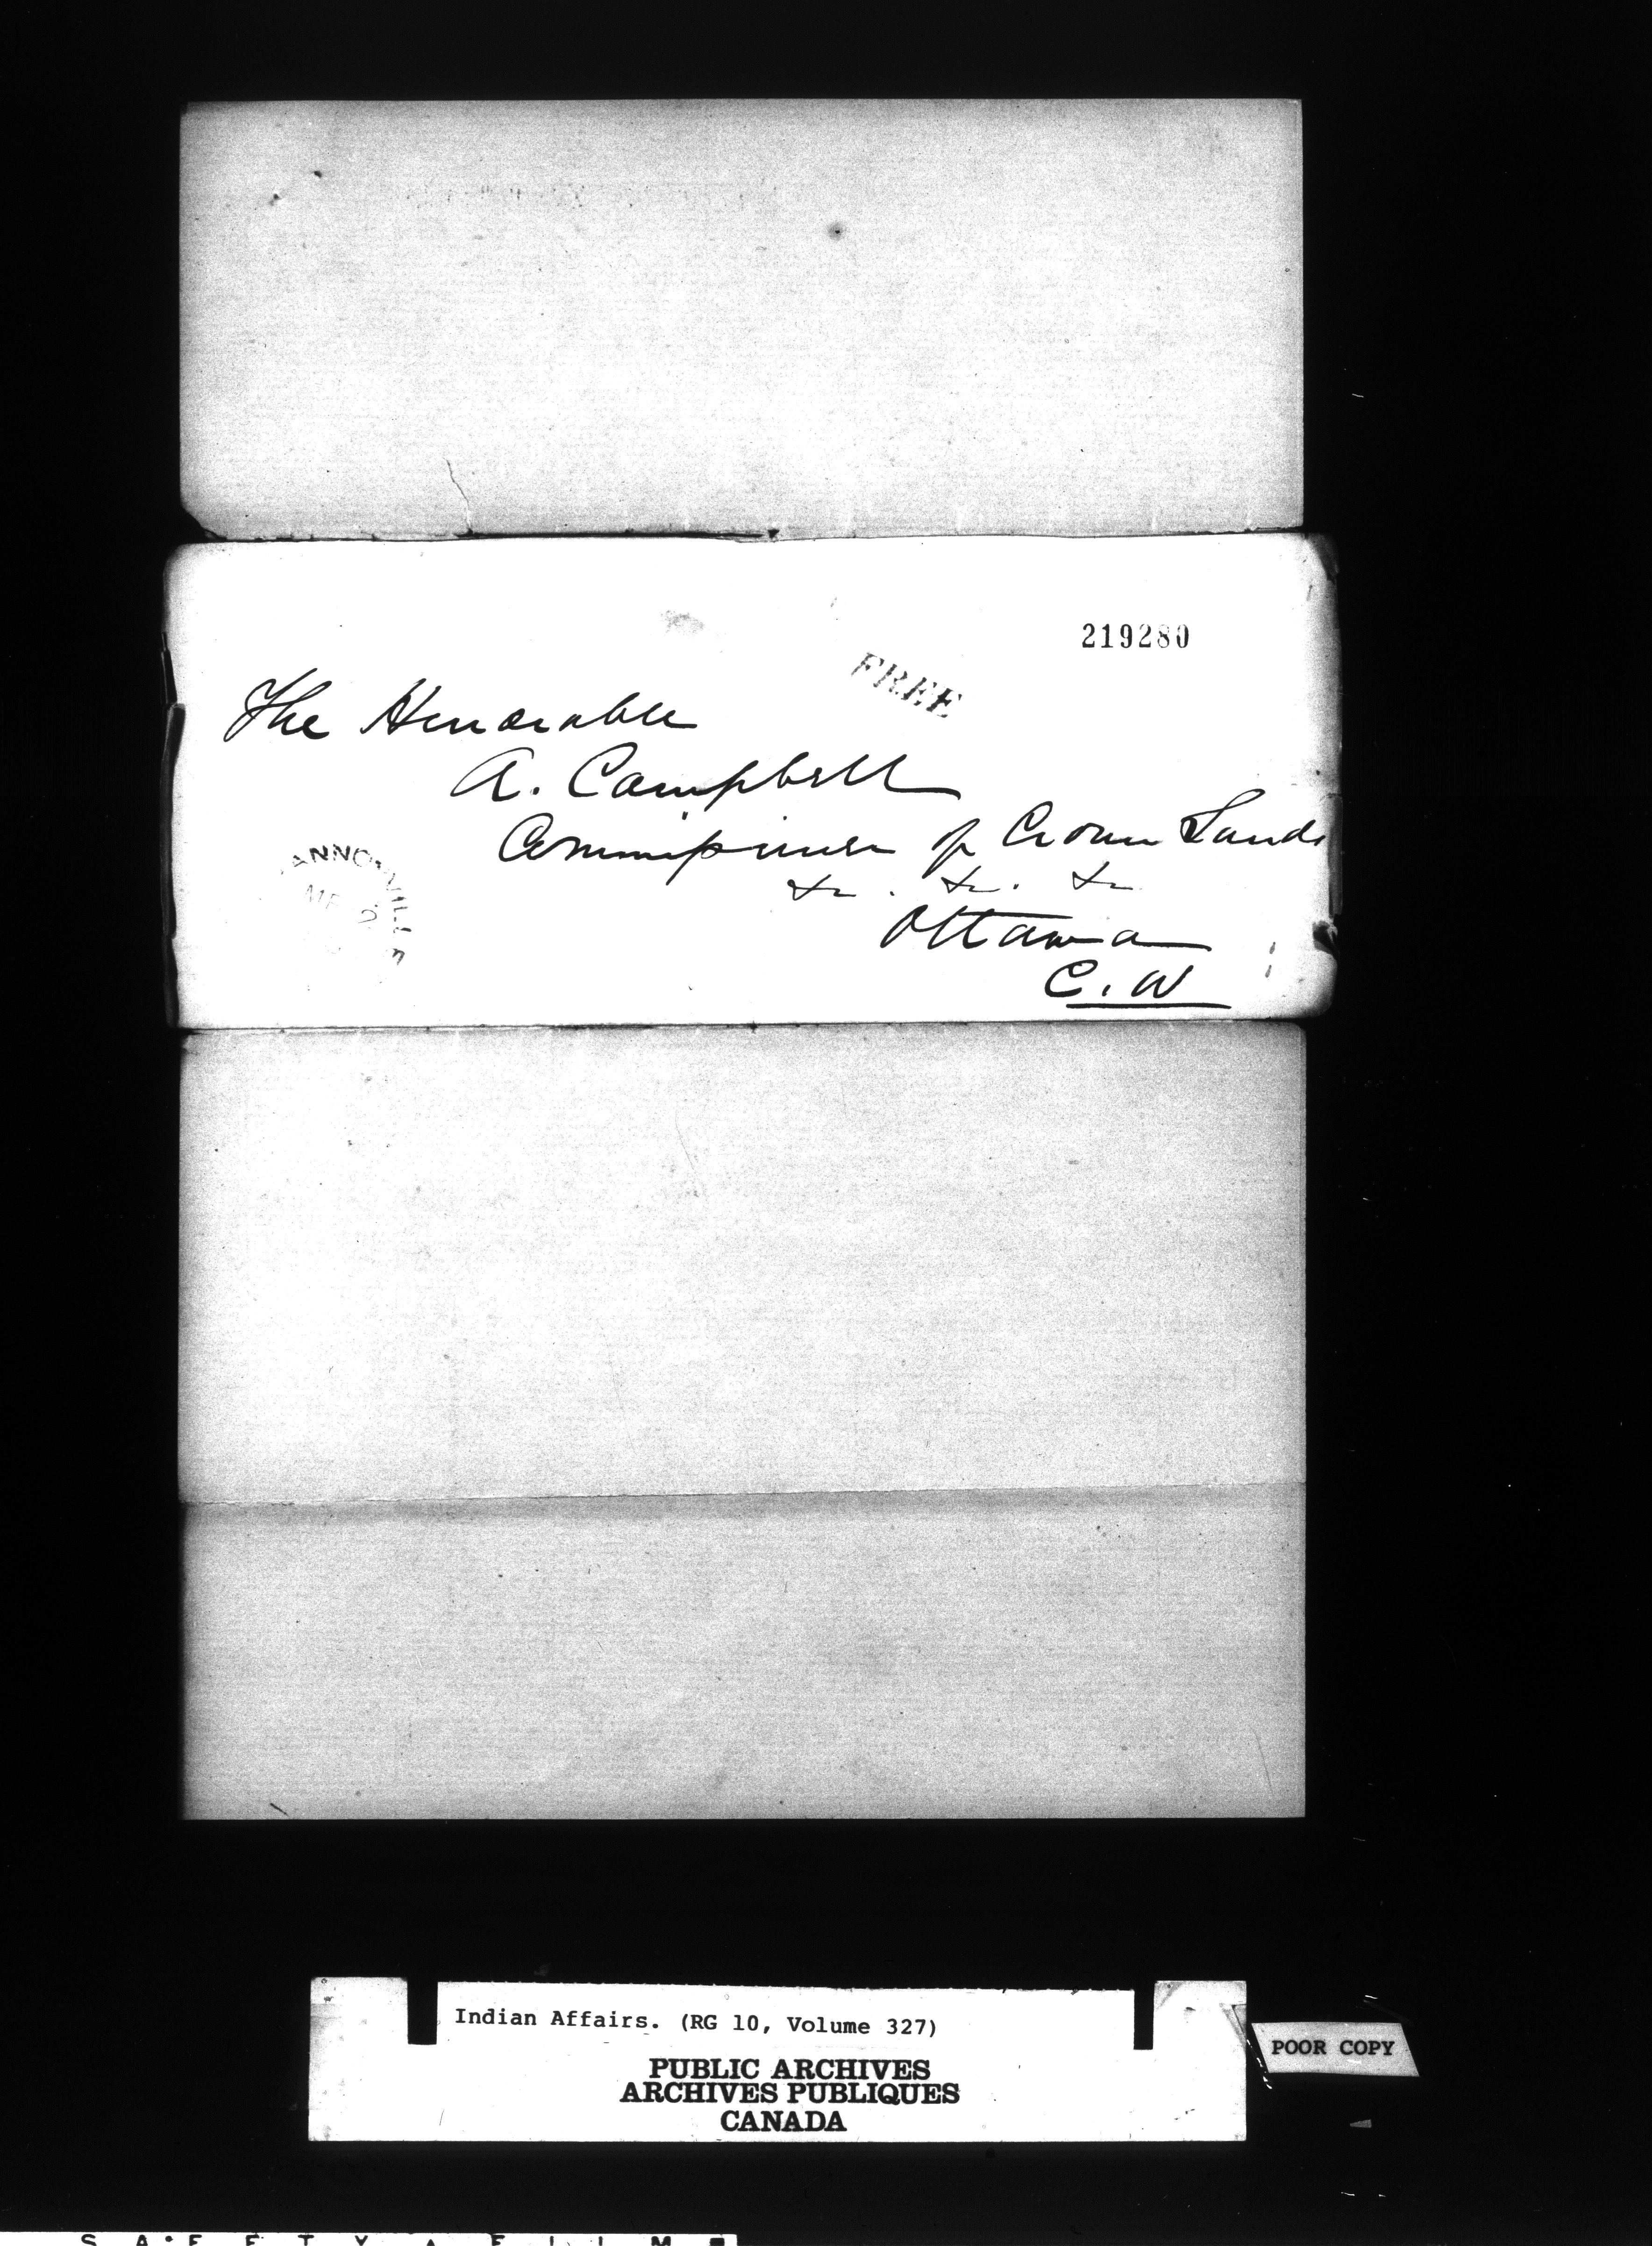 219280
FREE
The Honorable
A. Campbell
Commissioner of Crown Lands
&c. &c. &c
Ottawa
C. W
ANNONVILLE
Indian Affairs. (RG 10, Volume 327)
PUBLIC ARCHIVES
ARCHIVES PUBLIQUES
CANADA
POOR COPY
SAFETY FILM